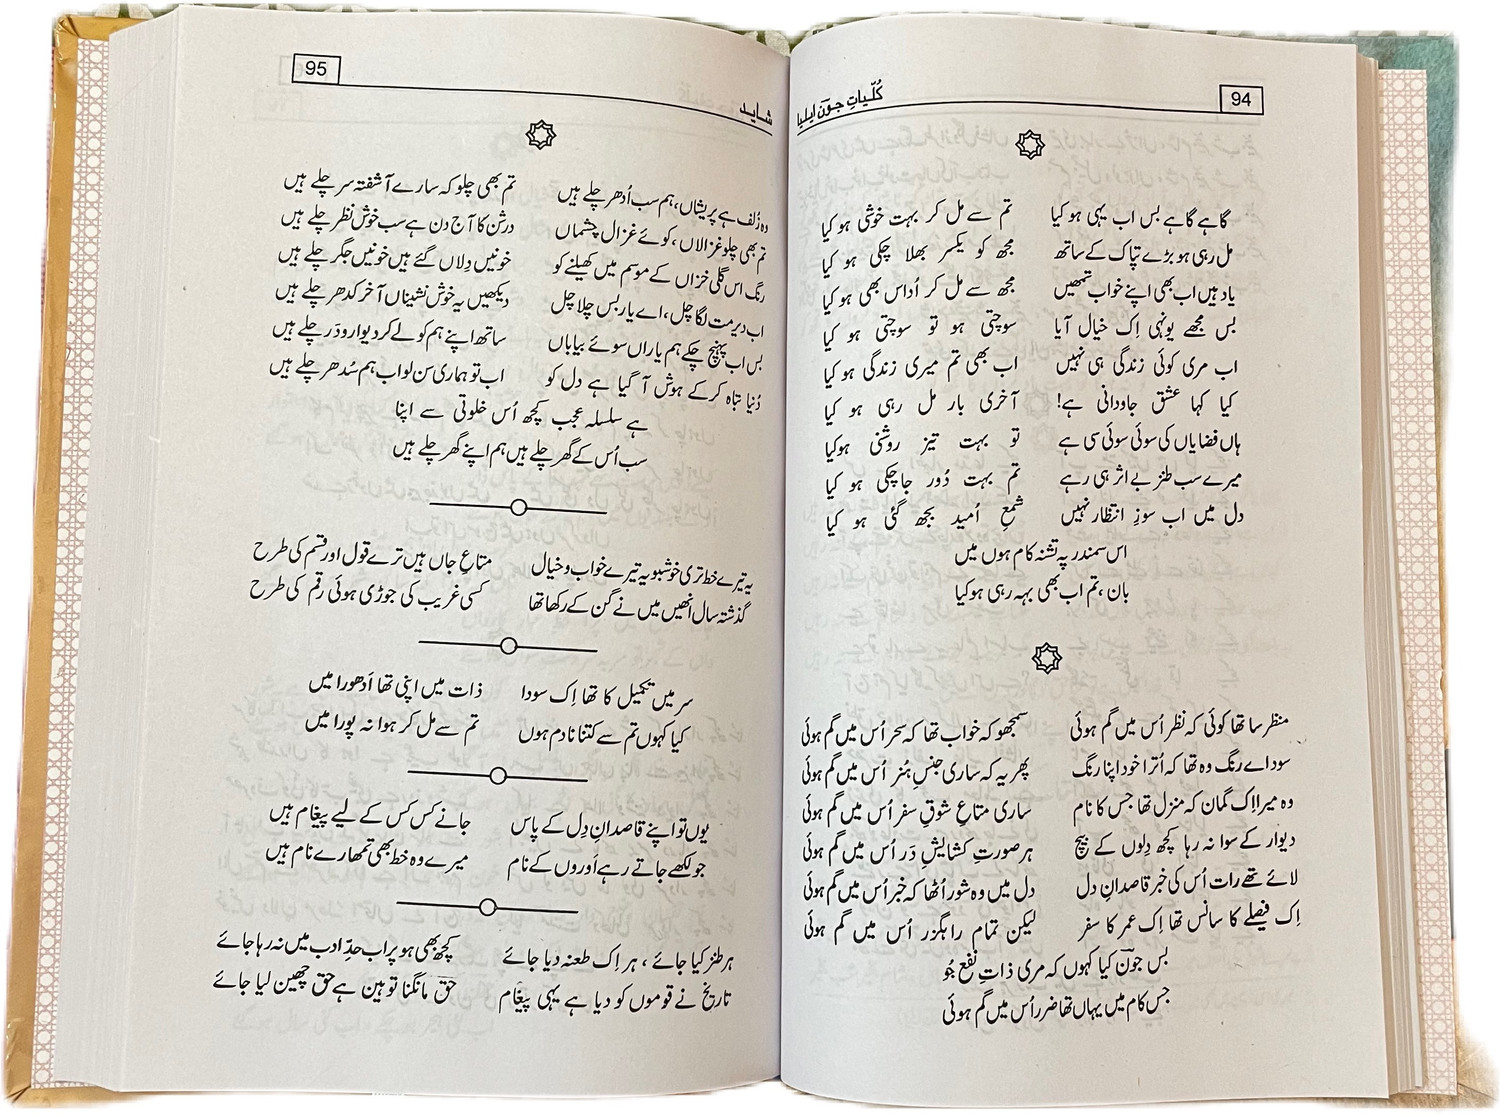 94
کُلّیاتِ جونؔ ایلیا
گاہے گاہے بس اب یہی ہو کیا تم سے مل کر بہت خوشی ہو کیا
مل رہی ہو بڑے تپاک کے ساتھ مجھ کو یکسر بھلا چکی ہو کیا
یاد ہیں اب بھی اپنے خواب تمھیں مجھ سے مل کر اُداس بھی ہو کیا
بس مجھے یونہی اِک خیال آیا سوچتی ہو تو سوچتی ہو کیا
اب مری کوئی زندگی ہی نہیں اب بھی تم میری زندگی ہو کیا
کیا کہا عشق جاودانی ہے! آخری بار مل رہی ہو کیا
ہاں فضا یاں کی سوئی سوئی سی ہے تو بہت تیز روشنی ہو کیا
میرے سب طنز بے اثر ہی رہے تم بہت دُور جا چکی ہو کیا
دل میں اب سوزِ انتظار نہیں شمعِ اُمید بجھ گئی ہو کیا
اس سمندر پہ تشنہ کام ہوں میں
بان، تم اب بھی بہہ رہی ہو کیا
منظر سا تھا کوئی کہ نظر اُس میں گم ہوئی سمجھو کہ خواب تھا کہ سحر اُس میں گم ہوئی
سوداے رنگ وہ تھا کہ اُترا خود اپنا رنگ پھر یہ کہ ساری جنسِ ہُنر اُس میں گم ہوئی
وہ میرا اِک گمان کہ منزل تھا جس کا نام ساری متاعِ شوقِ سفر اُس میں گم ہوئی
دیوار کے سوا نہ رہا کچھ دِلوں کے بیچ ہر صورتِ کشایشِ دَر اُس میں گم ہوئی
لائے تھے رات اُس کی خبر قاصدانِ دل دل میں وہ شور اُٹھا کہ خبر اُس میں گم ہوئی
اِک فیصلے کا سانس تھا اِک عمر کا سفر لیکن تمام راہگزر اُس میں گم ہوئی
بس جونؔ کیا کہوں کہ مری ذاتِ نفع جُو
جس کام میں یہاں تھا ضرر اُس میں گم ہوئی
95
شاید
وہ زُلف ہے پریشاں، ہم سب اُدھر چلے ہیں تم بھی چلو کہ سارے آشفتہ سر چلے ہیں
تم بھی چلو غزالاں، کوئے غزال چشماں درشن کا آج دن ہے سب خوش نظر چلے ہیں
رنگ اس گلی خزاں کے موسم میں کھیلنے کو خونیں دِلاں گئے ہیں خونیں جگر چلے ہیں
اب دیر مت لگا چل، اے یار بس چلا چل دیکھیں یہ خوش نشیناں آخر کدھر چلے ہیں
بس اب پہنچ چکے ہم یاراں سوئے بیاباں ساتھ اپنے ہم کو لے کر دیوار و دَر چلے ہیں
دُنیا تباہ کر کے ہوش آ گیا ہے دل کو اب تو ہماری سن لو اب ہم سُدھر چلے ہیں
ہے سلسلہ عجب کچھ اُس خلوتی سے اپنا
سب اُس کے گھر چلے ہیں ہم اپنے گھر چلے ہیں
یہ تیرے خط تری خوشبو یہ تیرے خواب و خیال متاعِ جاں ہیں ترے قول اور قسم کی طرح
گذشتہ سال انھیں میں نے گن کے رکھا تھا کسی غریب کی جوڑی ہوئی رقم کی طرح
سر میں تکمیل کا تھا اِک سودا ذات میں اپنی تھا اَدھورا میں
کیا کہوں تم سے کتنا نادم ہوں تم سے مل کر ہوا نہ پورا میں
یوں تو اپنے قاصدانِ دِل کے پاس جانے کس کس کے لیے پیغام ہیں
جو لکھے جاتے رہے اَوروں کے نام میرے وہ خط بھی تمھارے نام ہیں
ہر طنز کیا جائے ، ہر اِک طعنہ دیا جائے کچھ بھی ہو پر اب حدِّ ادب میں نہ رہا جائے
تاریخ نے قوموں کو دیا ہے یہی پیغام حق مانگنا توہین ہے حق چھین لیا جائے